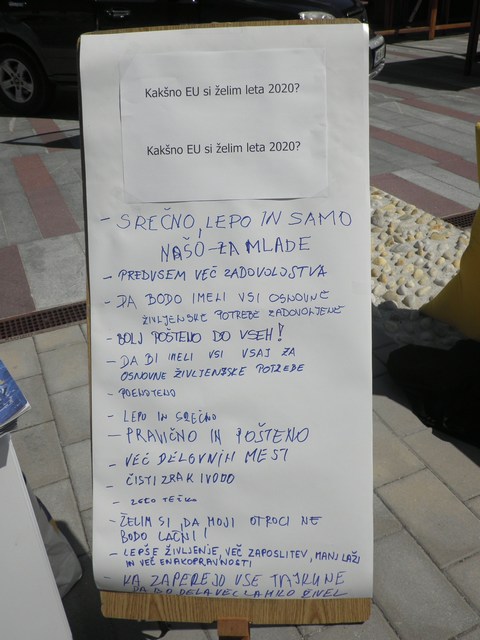 Kakšno EU si želim leta 2020?
Kakšno EU si želim leta 2020?
- SREČNO, LEPO IN SAMO
NAŠO ZA MLADE
- PREDVSEM VEČ ZADOVOLJSTVA
- DA BODO IMELI VSI OSNOVNE
ŽIVLJENSKE POTREBE ZADOVOLJENE
- BOLJ POŠTENO DO VSEH!
- DA BI IMELI VSI VSAJ ZA
OSNOVNE ŽIVLJENJSKE POTREBE
- POENOTENO
- LEPO IN SREČNO
- PRAVIČNO IN POŠTENO
- VEČ DELOVNIH MEST
- ČISTI ZRAK I VODO
- ZELO TEŽKO
- ŽELIM SI, DA MOJI OTROCI NE
BODO LAČNI!
- LEPŠE ŽIVLJENJE, VEČ ZAPOSLITEV, MANJ LAŽI
IN VEČ ENAKOPRAVNOSTI
- ZAPEREJO VSE TAJKUNE
DA BO DELAVEC LAHKO ŽIVEL